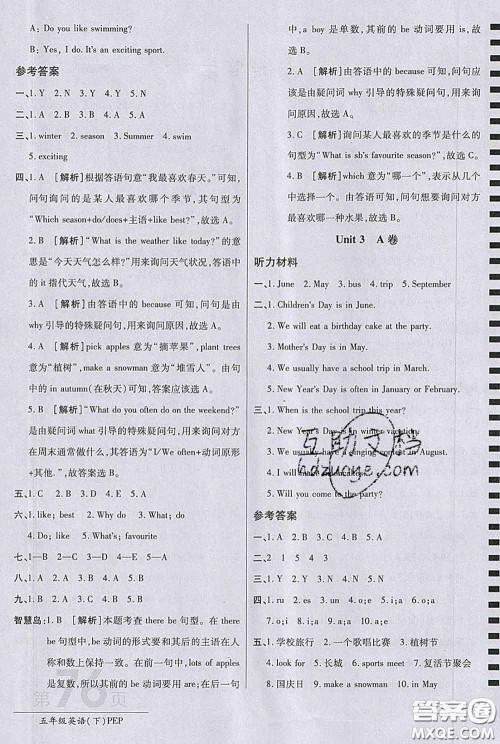 A: Do you like swimming?
B: Yes, I do. It's an exciting sport.
参考答案
一、1. Y 2. N 3. Y 4. N 5. Y
二、1. C 2. A 3. B 4. A 5. B
三、1. winter 2. season 3. Summer 4. swim
5. exciting
四、1. A [解析]根据答语句意“我最喜欢春天。”可知,
问句询问的是某人最喜欢哪个季节,其句型为
“Which season+do/does+主语+like best?”,故
选A。
2. B [解析]“What is the weather like today?”的意
思是“今天天气怎么样?”用来询问天气状况,答语中
的 it 指代天气,故选 B。
3. A [解析]由答语中的 because 可知,问句应该
是由疑问词 why 引导的特殊疑问句,用来询问原
因,故选 A。
4. B [解析]pick apples 意为“摘苹果”,plant trees
意为“植树”,make a snowman 意为“堆雪人”。答
语中的 in autumn(在秋天)可知,答案应该选 A。
5. B [解析]“What do you often do on the weekend?”
是由疑问词 what 引导的特殊疑问句,用来询问对方
在周末通常做什么,其答语为“I/We often+动词原形
+其他.”,故答案选 B。
五、1. C 2. D 3. E 4. B 5. A
六、1. like; best 2. Why; because 3. What; do
4. Do; do 5. What's; favourite
七、1—B 2—C 3—D 4—E 5—A
八、1. B 2. B 3. A 4. A 5. A
九、1. B 2. B 3. A 4. B 5. A
智慧岛:1. B [解析]本题考查 there be 句型。在 there
be 句型中,be 动词的形式要和其后的主语在人
称和数上保持一致,即就近原则。lots of apples
是复数,所以其前的 be 动词要用 are,故选 B;
第76页
五年级英语(下)PEP
a boy 是单数,其前的 be 动词要用 is,故
选 A。
2. A [解析]由答语中的 because 可知,问句应该
为由疑问词 why 引导的特殊疑问句,用来询问
原因,故选 A。
3. B [解析]询问某人最喜欢的季节是什么的
句型为“What is sb's favourite season?”,故
选 B。
4. A [解析]which 意为“哪一个”,表示从多个
中选择一个。由答语可知,问句要询问对方最
喜欢哪一种水果,故选 A。
Unit 3 A 卷
听力材料
一、1. June 2. May 3. bus 4. trip 5. September
二、1. Children's Day is in June.
2. We will eat a birthday cake at the party.
3. Mother's Day is in May.
4. We will have a school trip in March.
5. New Year's Day is often in January or February.
三、1. When is the school trip this year?
2. New Year's Day is in winter vacation.
3. We usually have a singing contest in August.
4. I usually make
5. Will you come to the party?
参考答案
一、1. B 2. B 3. A 4. A 5. B
二、2 1 5 4 3
三、1. B 2. B 3. A 4. A 5. B
四、1. ru 2. es 3. o;i;a 4. o;i;a 5. i;a
6. o;e
五、1. 学校旅行 2. 一个歌唱比赛 3. 植树节
4. look for 5. 长城 6. sports meet 7. 复活节聚会
8. 国庆日 9. in May 10. 中秋节
互助文档
hdzuoye.com
答案圈
MXQE.COM